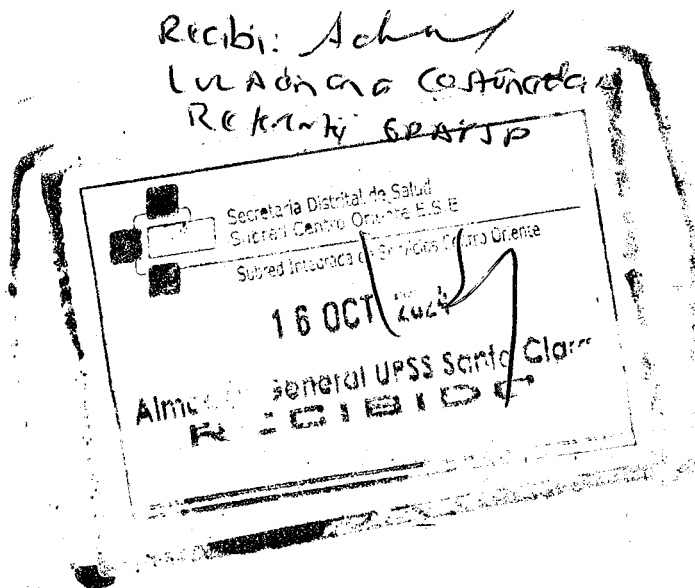 Recibi:
Luz Adriana Castañeda
Referente
Secretaria Distrital de Salud
Subred Centro Oriente E.S.E
Subred Integrada de Servicios Centro Oriente
16 OCT 2024
General UPSS Santa Clara
RECIBIDO